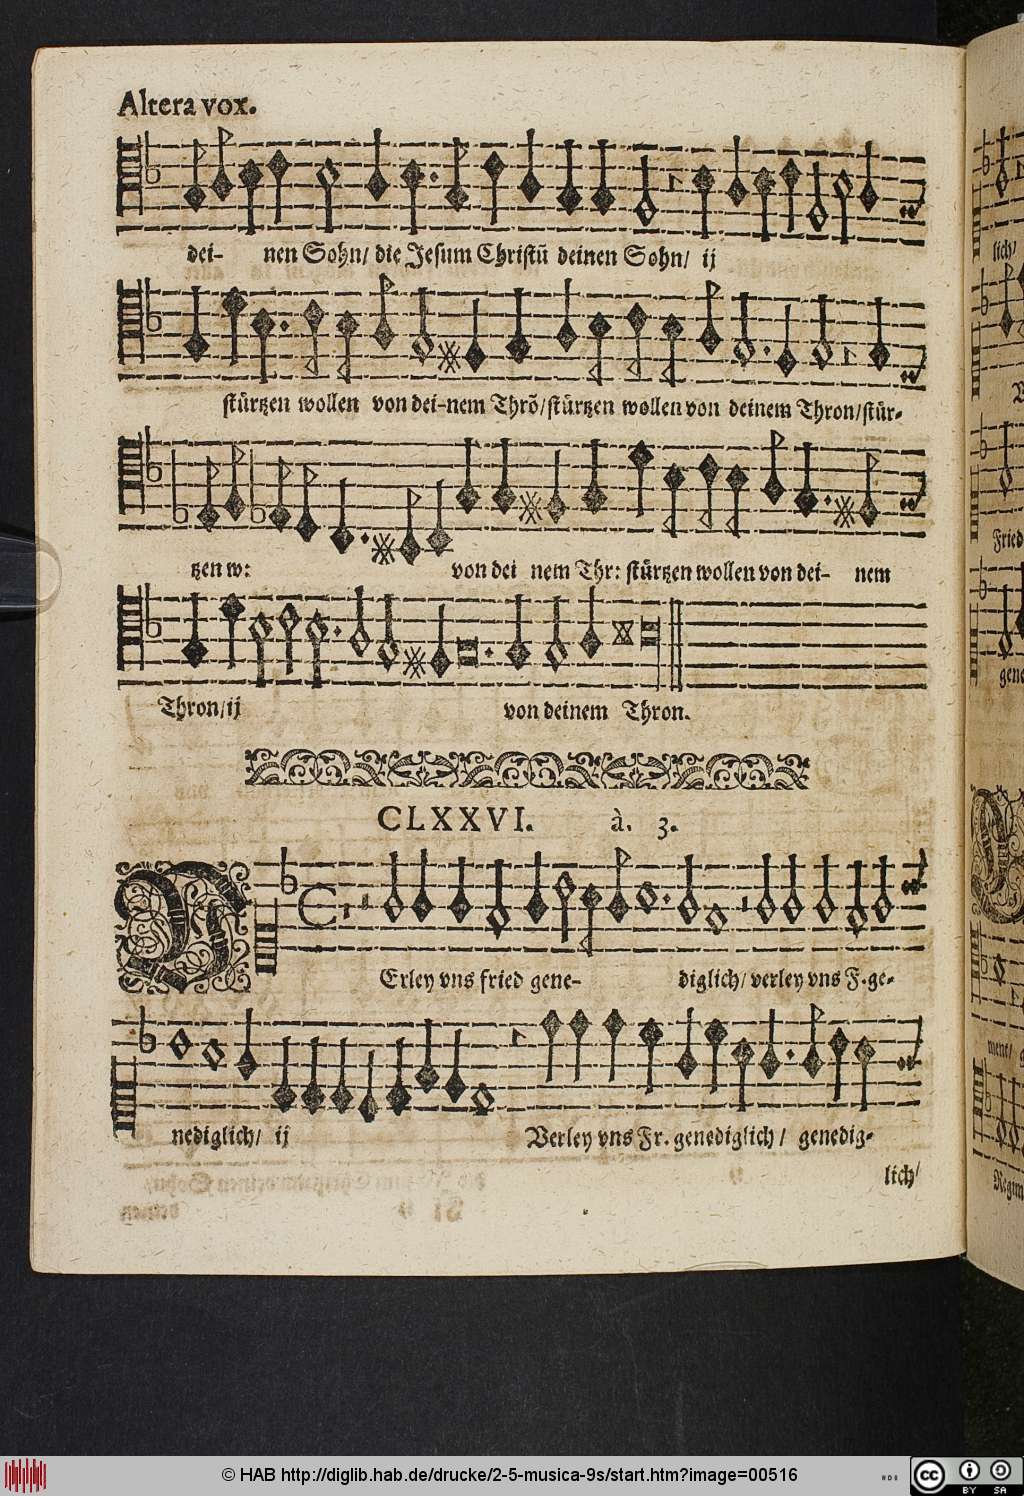 Altera vox.
dei- nen Sohn/ die Jesum Christū deinen Sohn/ ij
stürtzen wollen von dei-nem Thrõ/stürtzen wollen von deinem Thron/stür-
tzen w: von dei nem Thr: stürtzen wollen von dei- nem
Thron/ij von deinem Thron.
CLXXVI. à. 3.
VErley vns fried gene- diglich/ verley vns F.ge-
nediglich/ ij Verley vns Fr. genediglich/ genedig-
lich/
lich/
Fried
gene
ment/
Regim
© HAB http://diglib.hab.de/drucke/2-5-musica-9s/start.htm?image=00516
cc BY SA